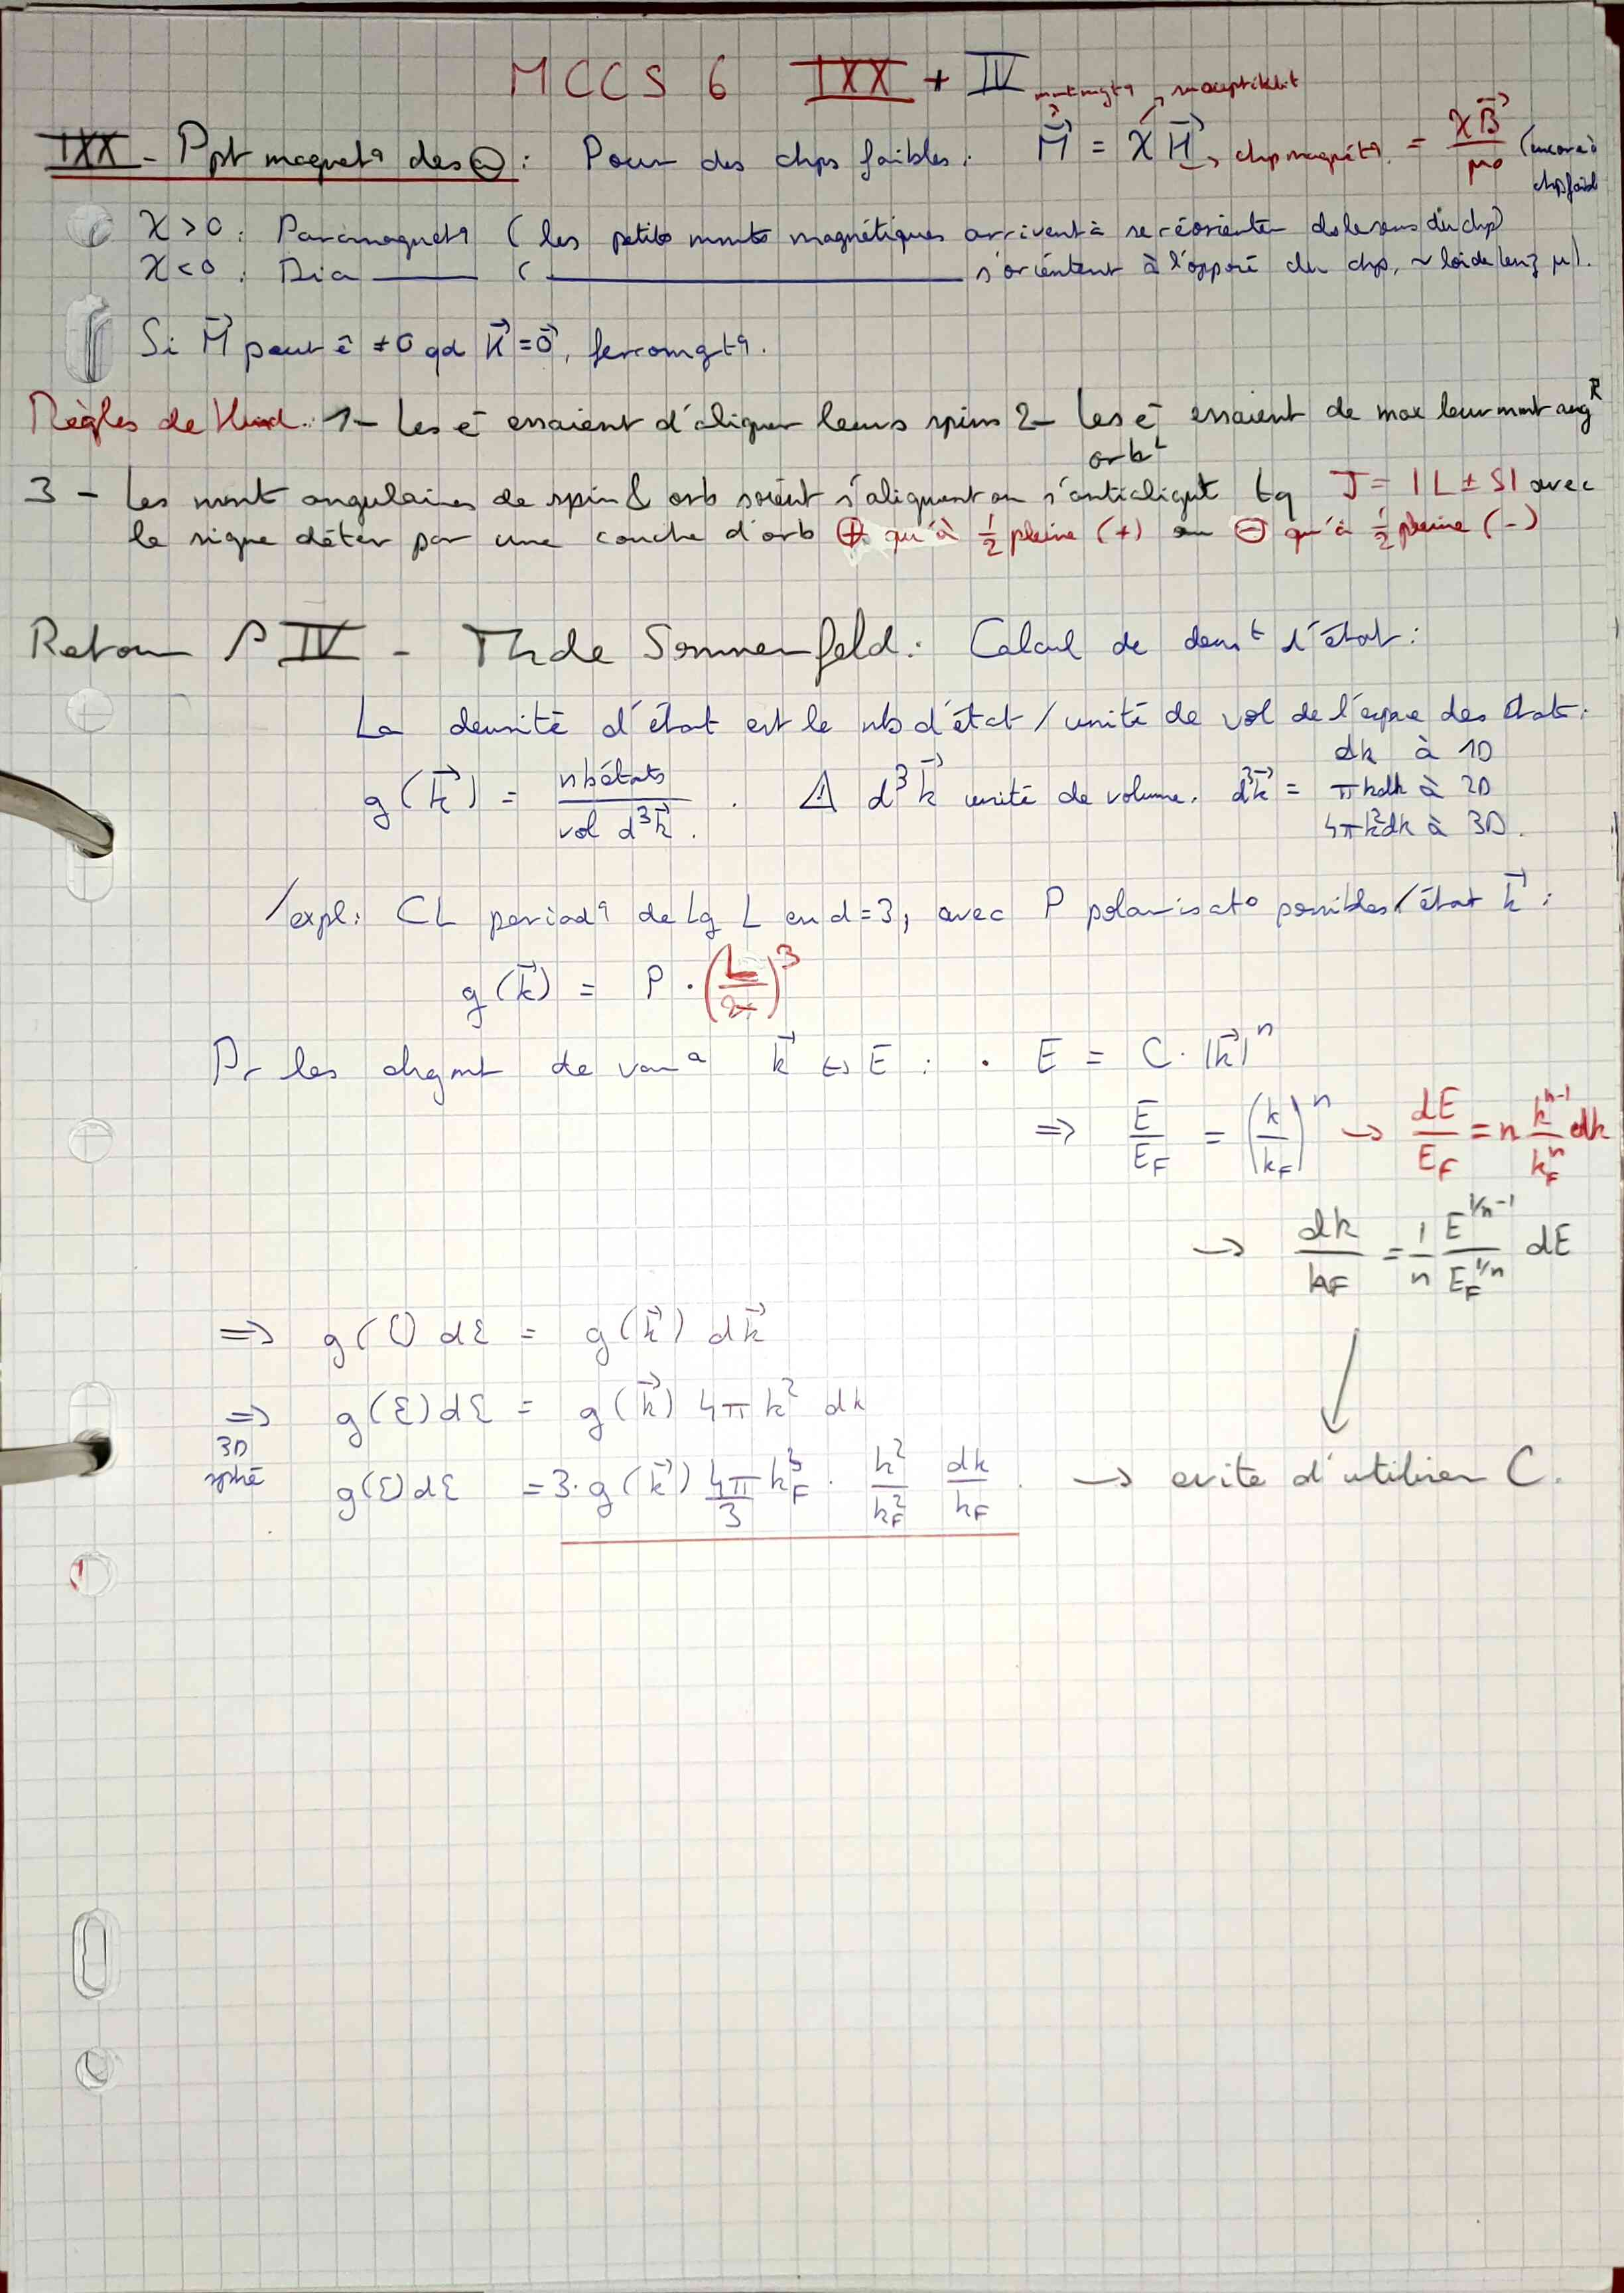 MCCS 6 IXX + IV
mmt mgtq susceptibilit
IXX - Ppt magnetq des ⊖ : Pour des chps faibles : M⃗ = χ H⃗ → chp magnétq. = χB⃗/μ0 (encore à chp faibl
χ > 0 : Paramagnétq ( les petits mmts magnétiques arrivent à se réorienter ds le sens du chp)
χ < 0 : Dia ——— ( ——————— s'orientent à l'opposé du chp, ~ loi de lenz μ).
Si M⃗ peut ê ≠ 0 qd H⃗ = 0⃗, ferromgtq.
Règles de Hund : 1- Les e⁻ essaient d'aligner leurs spins 2- Les e⁻ essaient de max leur mmt angR
orbL
3 - Les mmt angulaires de spin & orb soient s'alignent ou s'antialignt tq J = |L ± S| avec
le signe déter par une couche d'orb ⊕ qu'à 1/2 pleine (+) ou ⊖ qu'à 1/2 pleine (-)
Retour IV - Th de Sommenfeld : Calcul de denst d'état :
La densité d'état est le nb d'état / unité de vol de l'espace des états :
g(k⃗) = nb états / vol d³k⃗ . ⚠ d³k⃗ unité de volume. d³k⃗ = dk à 1D
πkdk à 2D
4πk²dk à 3D.
/expl : CL periodq de Lg L en d=3, avec P polarisato possibles/état k⃗ :
g(k⃗) = P · (L/2π)³
Pr les chgmt de vara k⃗ ↔ E : · E = C · |k⃗|ⁿ
⇒ E/E_F = (k/k_F)ⁿ → dE/E_F = n k^(n-1)/k_Fⁿ dk
→ dk/k_F = 1/n E^(1/n-1)/E_F^(1/n) dE
⇒ g(ℰ) dℰ = g(k⃗) dk⃗
⇒ g(ℰ) dℰ = g(k⃗) 4π k² dk
3D
sphé g(ℰ) dℰ = 3 · g(k⃗) 4π/3 k_F³ · k²/k_F² dk/k_F . → evite d'utiliser C.